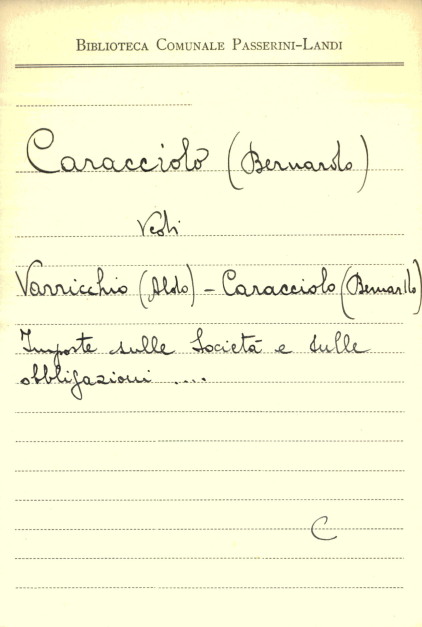 BIBLIOTECA COMUNALE PASSERINI-LANDI
Caracciolo (Bernardo)
Vedi
Varricchio (Aldo) - Caracciolo (Bernardo)
Imposte sulle Società e sulle
obbligazioni ....
C